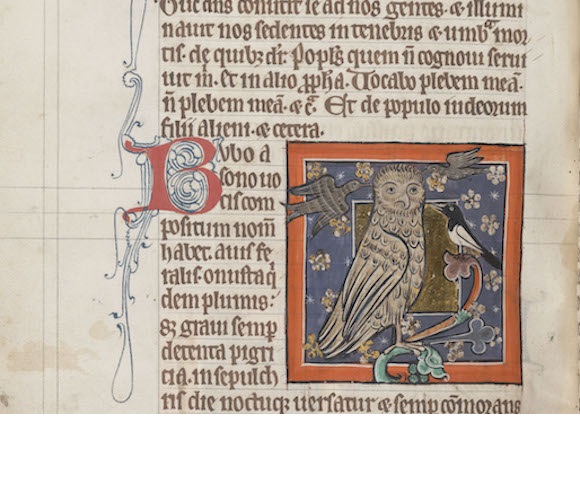 Que dns conūtit se ad nos gentes. & illumi
nauit nos sedentes in tenebris & umbᵃ mor
tis. de quibꝫ dic̄. Popl̄s quem n̄ cognoui serui
uit m̄. Et in alio ꝓpha. Vocabo plebem meā.
n̄ plebem meā. & c̄. Et de populo iudeorum
filii alieni. & cetera.
Bubo a
sono uo
cis com
positum nom̄
habet. auis fe
ralis. onusta q̇
dem plumis:
sꝫ graui semꝑ
detenta pigri
cia. in sepulch
ris die noctuqꝫ uersatur & semꝑ cōmorans